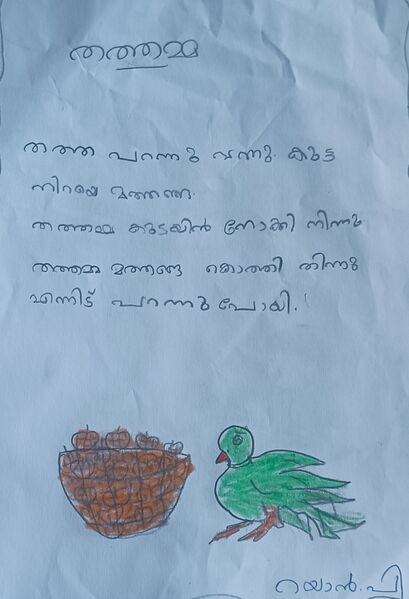 തത്തമ്മ
തത്ത പറന്നു വന്നു. കുട്ട
നിറയെ മത്തങ്ങ.
തത്തമ്മ കുട്ടയിൻ നോക്കി നിന്നു
തത്തമ്മ മത്തങ്ങ കൊത്തി തിന്നു
എന്നിട് പറന്നു പോയി.
റയാൻ.പി